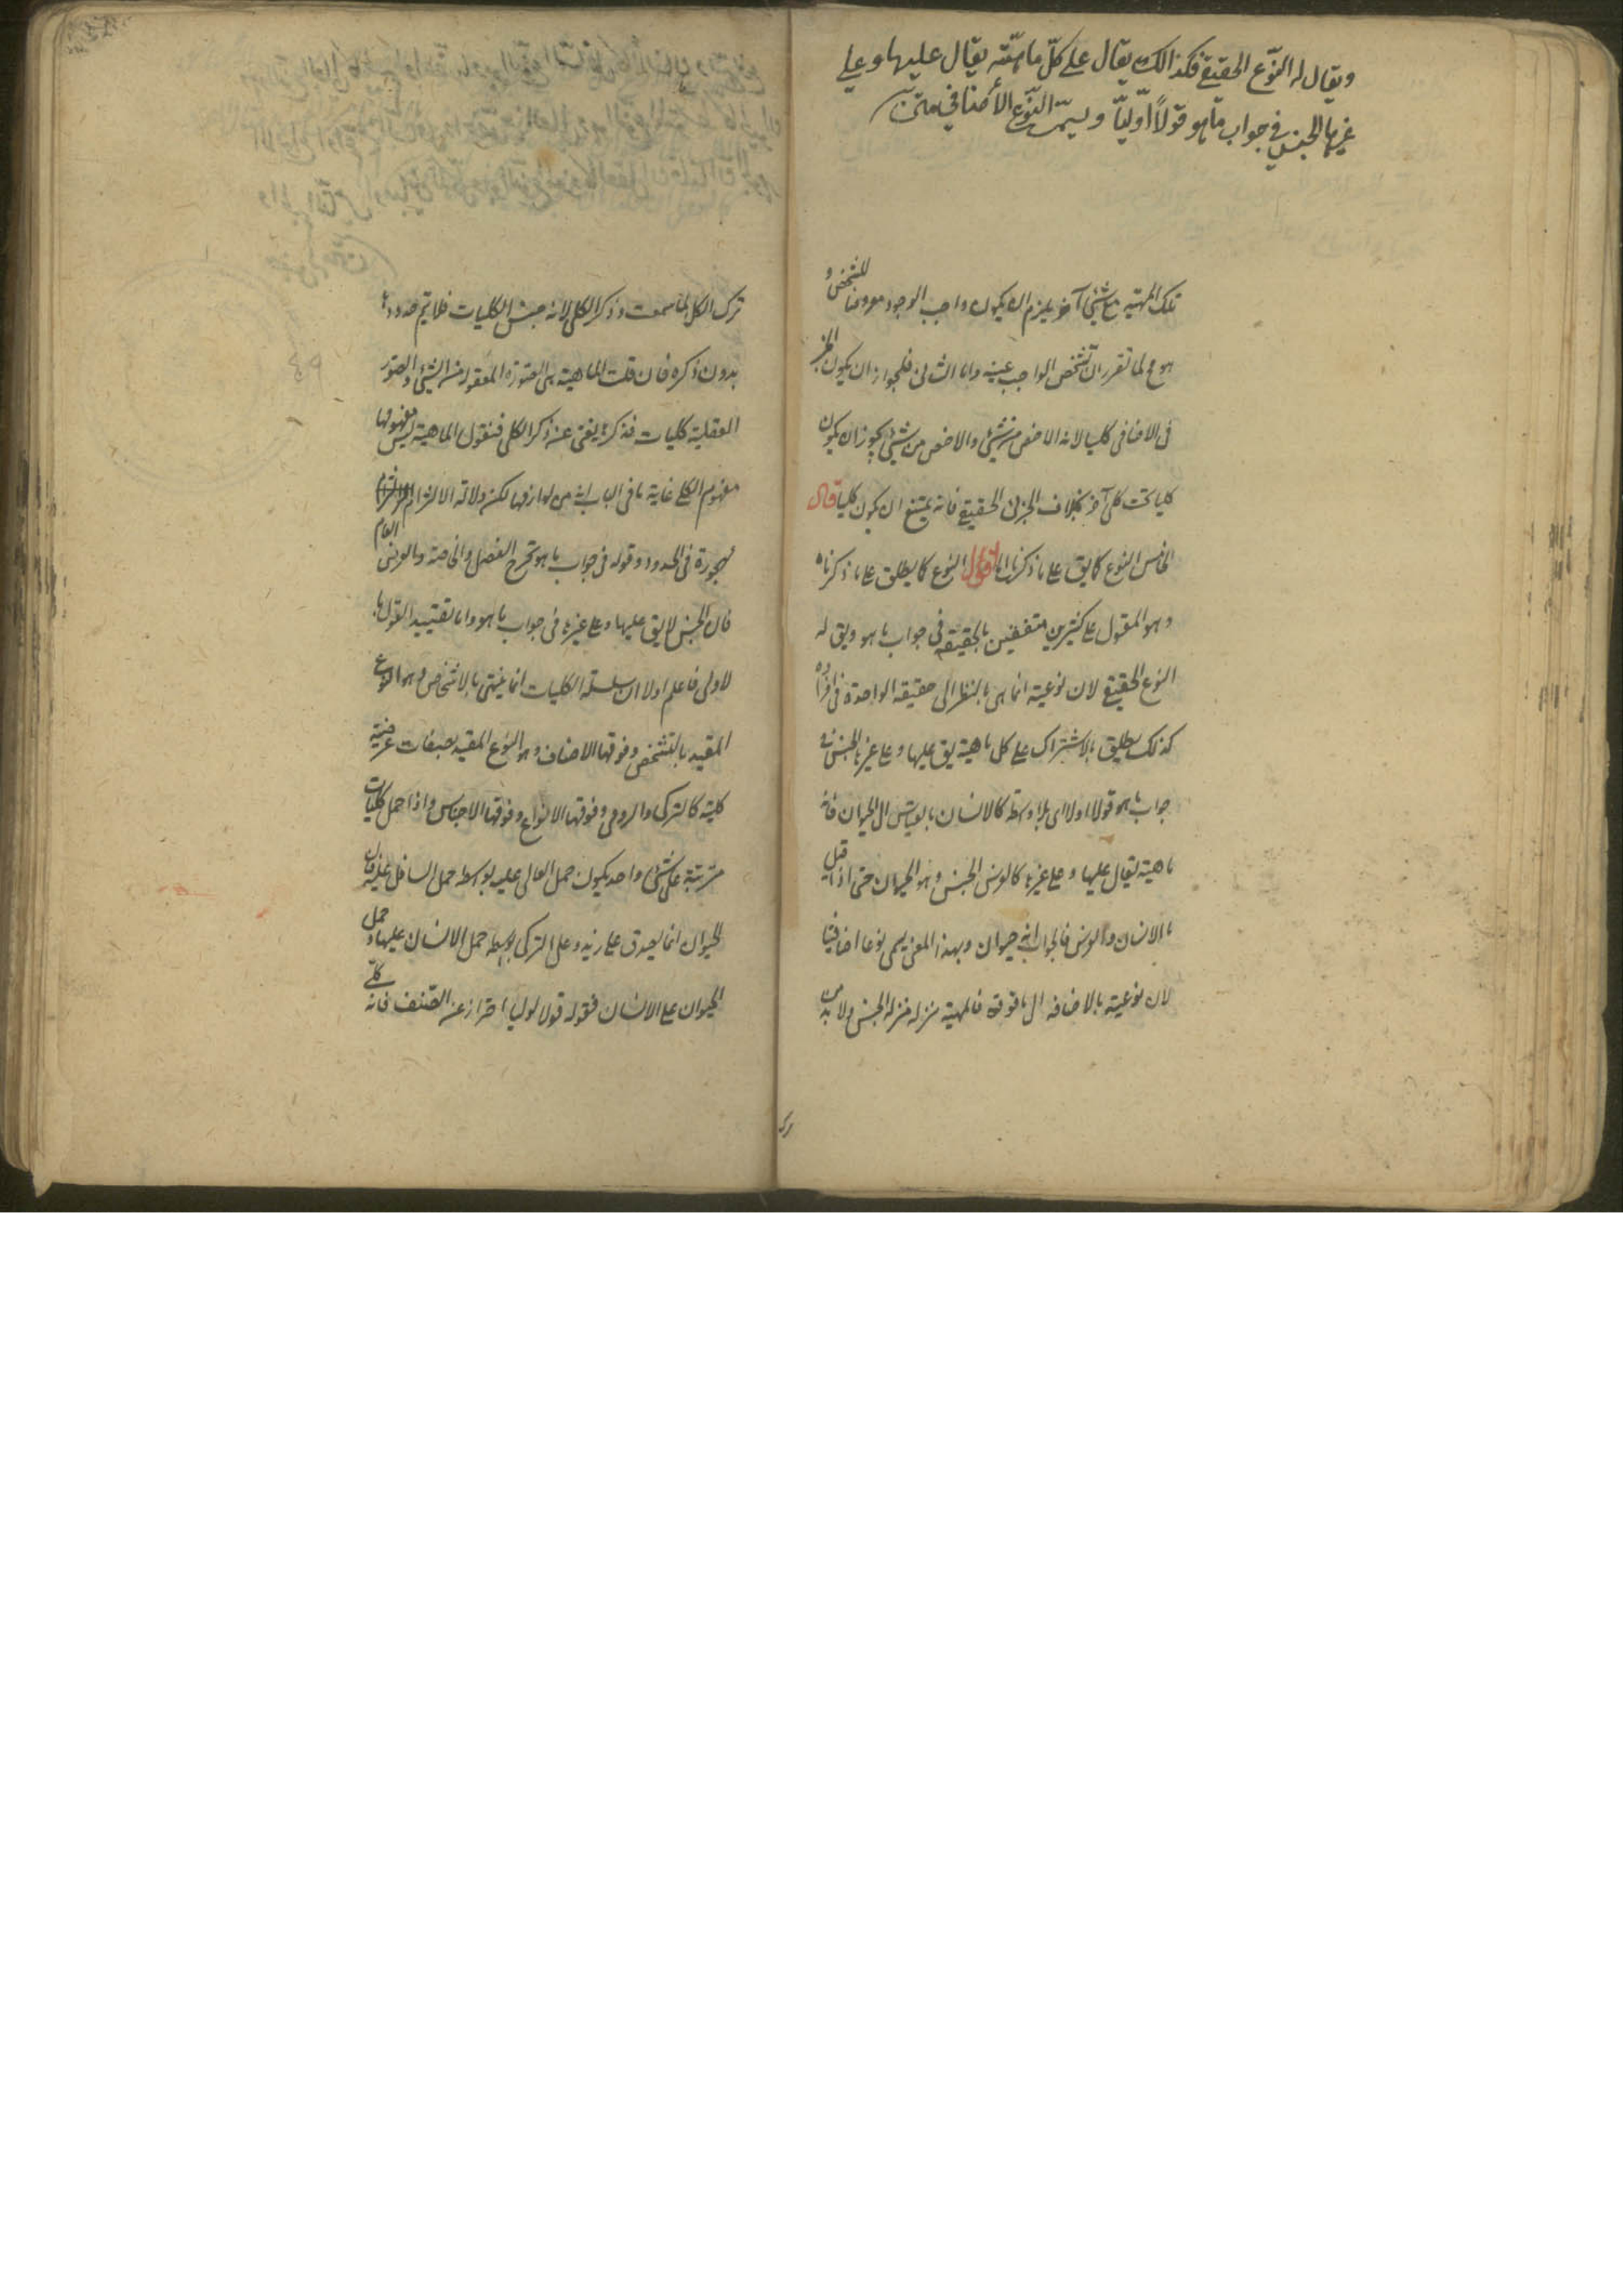 ويقال له النّوع الحقيقي فكذالك يقال على كلّ ماهيّته يقال عليها وعلى
غيرها الجنس في جواب ما هو قولاً اوّليّاً ويسمّى النّوع الأضافي متن
تلك المهية مع شيئ آخر يلزم ان يكون واجب الوجود معروضا للتشخص و
هو مح لما تقرر ان تشخص الواجب عينه واما الثانى فلجواز ان يكون الجز
ئى الاضافى كليا لانه الاخص من شيئ والاخص من شيئ يجوز ان يكون
كليا تحت كلى آخر بخلاف الجزئى الحقيقى فانه يمتنع ان يكون كليا قال
الخامس النوع كما يق على ما ذكرناه اقول النوع كما يطلق على ما ذكرناه
وهو المقول على كثيرين متفقين بالحقيقه فى جواب ما هو ويق له
النوع الحقيقى لان نوعيته انما هى بالنظر الى حقيقه الواحدة فى افراده
كذلك يطلق بالاشتراك على كل ماهية يق عليها وعلى غيرها الجنس فى
جواب ما هو قولا اوليا اى بلا واسطة كالانسان بالقياس الى الحيوان فانه
ماهية يقال عليها وعلى غيرها كالفرس الجنس وهو الحيوان حتى اذا قيل
ما الانسان والفرس فالجواب انه حيوان وبهذا المعنى يسمى نوعا اضافيا
لان نوعيته بالاضافه الى ما فوقه فالمهية منزله منزلة الجنس ولا بد من
ترك الكل لما سمعت وذكر الكلى لانه جنس الكليات فلا يتم حدودها
بدون ذكره فان قلت الماهية هى الصورة المعقولة من الشيئ والصور
العقلية كليات فذكرها يغنى عن ذكر الكلى فنقول الماهية ليس مفهومها
مفهوم الكلى غاية ما فى الباب انه من لوازمها لكن دلالة الالتزام
مهجورة فى الحدود وقوله فى جواب ما هو يخرج الفصل والخاصة والعرض العام
فان الجنس لا يق عليها وعلى غيرها فى جواب ما هو واما تقييد القول با
لاولى فاعلم اولا ان سلسلة الكليات انما ينتهى بالاشخاص وهو النوع
المقيد بالتشخص وفوقها الاصناف وهو النوع المقيد بصفات عرضية
كلية كالتركى والرومى وفوقها الانواع وفوقها الاجناس واذا حمل كليات
مترتبة على شيئ واحد يكون حمل العالى عليه بواسطه حمل السافل عليه فان
الحيوان انما يصدق على زيد وعلى التركى بواسطه حمل الانسان عليهما وحمل
الحيوان على الانسان فقوله قولا اوليا احتراز عن الصنف فانه كلّى